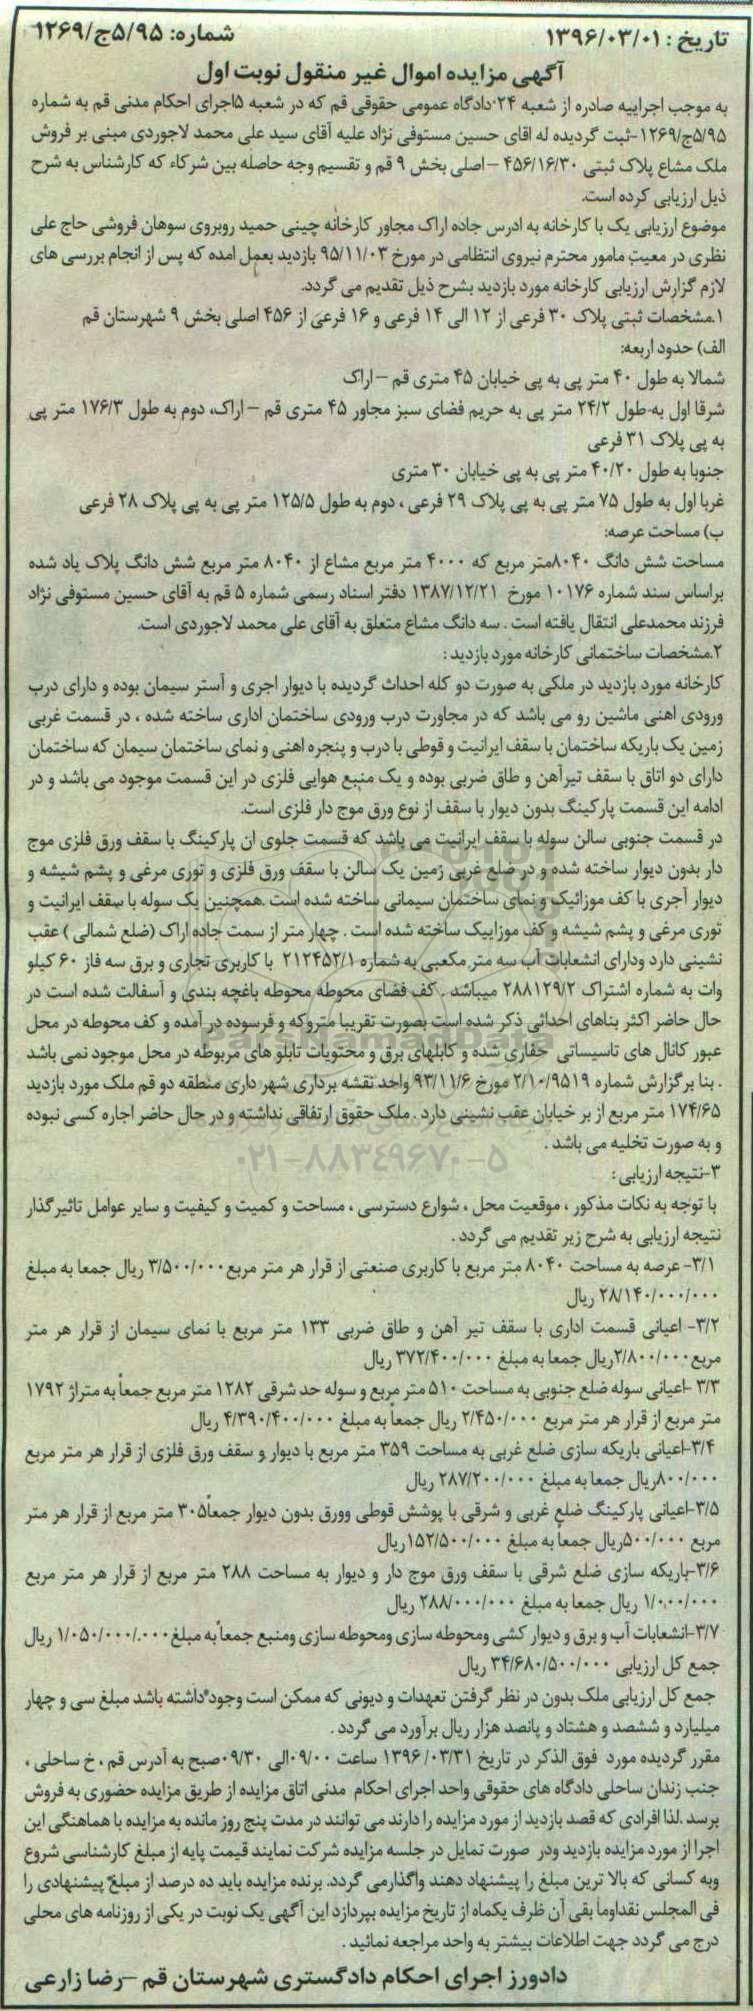 تاریخ : ۱۳۹۶/۰۳/۰۱ شماره: ۵/۹۵ج/۱۲۶۹
آگهی مزایده اموال غیر منقول نوبت اول
به موجب اجراییه صادره از شعبه ۲۴-دادگاه عمومی حقوقی قم که در شعبه ۵اجرای احکام مدنی قم به شماره
۵/۹۵ج/۱۲۶۹-ثبت گردیده له اقای حسین مستوفی نژاد علیه آقای سید علی محمد لاجوردی مبنی بر فروش
ملک مشاع پلاک ثبتی ۴۵۶/۱۶/۳۰ –اصلی بخش ۹ قم و تقسیم وجه حاصله بین شرکاء که کارشناس به شرح
ذیل ارزیابی کرده است.
موضوع ارزیابی یک با کارخانه به ادرس جاده اراک مجاور کارخانه چینی حمید روبروی سوهان فروشی حاج علی
نظری در معیت مامور محترم نیروی انتظامی در مورخ ۹۵/۱۱/۰۳ بازدید بعمل امده که پس از انجام بررسی های
لازم گزارش ارزیابی کارخانه مورد بازدید بشرح ذیل تقدیم می گردد.
۱.مشخصات ثبتی پلاک ۳۰ فرعی از ۱۲ الی ۱۴ فرعی و ۱۶ فرعی از ۴۵۶ اصلی بخش ۹ شهرستان قم
الف) حدود اربعه:
شمالا به طول ۴۰ متر پی به پی خیابان ۴۵ متری قم –اراک
شرقا اول به طول ۲۴/۲ متر پی به حریم فضای سبز مجاور ۴۵ متری قم –اراک، دوم به طول ۱۷۶/۳ متر پی
به پی پلاک ۳۱ فرعی
جنوبا به طول ۴۰/۲۰ متر پی به پی خیابان ۳۰ متری
غربا اول به طول ۷۵ متر پی به پی پلاک ۲۹ فرعی ، دوم به طول ۱۲۵/۵ متر پی به پی پلاک ۲۸ فرعی
ب) مساحت عرصه:
مساحت شش دانگ ۸۰۴۰متر مربع که ۴۰۰۰ متر مربع مشاع از ۸۰۴۰ متر مربع شش دانگ پلاک یاد شده
براساس سند شماره ۱۰۱۷۶ مورخ ۱۳۸۷/۱۲/۲۱ دفتر اسناد رسمی شماره ۵ قم به آقای حسین مستوفی نژاد
فرزند محمدعلی انتقال یافته است . سه دانگ مشاع متعلق به آقای علی محمد لاجوردی است.
۲.مشخصات ساختمانی کارخانه مورد بازدید :
کارخانه مورد بازدید در ملکی به صورت دو کله احداث گردیده با دیوار اجری و آستر سیمان بوده و دارای درب
ورودی اهنی ماشین رو می باشد که در مجاورت درب ورودی ساختمان اداری ساخته شده ، در قسمت غربی
زمین یک باریکه ساختمان با سقف ایرانیت و قوطی با درب و پنجره اهنی و نمای ساختمان سیمان که ساختمان
دارای دو اتاق با سقف تیرآهن و طاق ضربی بوده و یک منبع هوایی فلزی در این قسمت موجود می باشد و در
ادامه این قسمت پارکینگ بدون دیوار با سقف از نوع ورق موج دار فلزی است.
در قسمت جنوبی سالن سوله با سقف ایرانیت می باشد که قسمت جلوی ان پارکینگ با سقف ورق فلزی موج
دار بدون دیوار ساخته شده و در ضلع غربی زمین یک سالن با سقف ورق فلزی و توری مرغی و پشم شیشه و
دیوار آجری با کف موزائیک و نمای ساختمان سیمانی ساخته شده است .همچنین یک سوله با سقف ایرانیت و
توری مرغی و پشم شیشه و کف موزاییک ساخته شده است . چهار متر از سمت جاده اراک (ضلع شمالی ) عقب
نشینی دارد ودارای انشعابات آب سه متر مکعبی به شماره ۲۱۲۴۵۲/۱ با کاربری تجاری و برق سه فاز ۶۰ کیلو
وات به شماره اشتراک ۲۸۸۱۲۹/۲ میباشد . کف فضای محوطه محوطه باغچه بندی و آسفالت شده است در
حال حاضر اکثر بناهای احداثی ذکر شده است بصورت تقریبا متروکه و فرسوده در آمده و کف محوطه در محل
عبور کانال های تاسیساتی حفاری شده و کابلهای برق و محتویات تابلو های مربوطه در محل موجود نمی باشد
. بنا برگزارش شماره ۲/۱۰/۹۵۱۹ مورخ ۹۳/۱۱/۶ واحد نقشه برداری شهر داری منطقه دو قم ملک مورد بازدید
۱۷۴/۶۵ متر مربع از بر خیابان عقب نشینی دارد . ملک حقوق ارتفاقی نداشته و در حال حاضر اجاره کسی نبوده
و به صورت تخلیه می باشد .
۳-نتیجه ارزیابی :
با توجه به نکات مذکور ، موقعیت محل ، شوارع دسترسی ، مساحت و کمیت و کیفیت و سایر عوامل تاثیرگذار
نتیجه ارزیابی به شرح زیر تقدیم می گردد .
۳/۱- عرصه به مساحت ۸۰۴۰ متر مربع با کاربری صنعتی از قرار هر متر مربع۳/۵۰۰/۰۰۰ ریال جمعا به مبلغ
۲۸/۱۴۰/۰۰۰/۰۰۰ ریال
۳/۲- اعیانی قسمت اداری با سقف تیر آهن و طاق ضربی ۱۳۳ متر مربع با نمای سیمان از قرار هر متر
مربع۲/۸۰۰/۰۰۰ریال جمعا به مبلغ ۳۷۲/۴۰۰/۰۰۰ ریال
۳/۳ -اعیانی سوله ضلع جنوبی به مساحت ۵۱۰ متر مربع و سوله حد شرقی ۱۲۸۲ متر مربع جمعاً به متراژ ۱۷۹۲
متر مربع از قرار هر متر مربع ۲/۴۵۰/۰۰۰ ریال جمعاً به مبلغ ۴/۳۹۰/۴۰۰/۰۰۰ ریال
۳/۴-اعیانی باریکه سازی ضلع غربی به مساحت ۳۵۹ متر مربع با دیوار و سقف ورق فلزی از قرار هر متر مربع
۸۰۰/۰۰۰ریال جمعا به مبلغ ۲۸۷/۲۰۰/۰۰۰ ریال
۳/۵-اعیانی پارکینگ ضلع غربی و شرقی با پوشش قوطی وورق بدون دیوار جمعاً۳۰۵ متر مربع از قرار هر متر
مربع ۵۰۰/۰۰۰ریال جمعاً به مبلغ ۱۵۲/۵۰۰/۰۰۰ریال
۳/۶-باریکه سازی ضلع شرقی با سقف ورق موج دار و دیوار به مساحت ۲۸۸ متر مربع از قرار هر متر مربع
۱/۰۰۰/۰۰۰ ریال جمعا به مبلغ ۲۸۸/۰۰۰/۰۰۰ ریال
۳/۷-انشعابات آب و برق و دیوار کشی ومحوطه سازی ومحوطه سازی ومنبع جمعاً به مبلغ۱/۰۵۰/۰۰۰/۰۰۰ ریال
جمع کل ارزیابی ۳۴/۶۸۰/۵۰۰/۰۰۰ ریال
جمع کل ارزیابی ملک بدون در نظر گرفتن تعهدات و دیونی که ممکن است وجود داشته باشد مبلغ سی و چهار
میلیارد و ششصد و هشتاد و پانصد هزار ریال برآورد می گردد .
مقرر گردیده مورد فوق الذکر در تاریخ ۱۳۹۶/۰۳/۳۱ ساعت ۰۹/۰۰الی ۰۹/۳۰صبح به آدرس قم ، خ ساحلی ،
جنب زندان ساحلی دادگاه های حقوقی واحد اجرای احکام مدنی اتاق مزایده از طریق مزایده حضوری به فروش
برسد .لذا افرادی که قصد بازدید از مورد مزایده را دارند می توانند در مدت پنج روز مانده به مزایده با هماهنگی این
اجرا از مورد مزایده بازدید ودر صورت تمایل در جلسه مزایده شرکت نمایند قیمت پایه از مبلغ کارشناسی شروع
وبه کسانی که بالا ترین مبلغ را پیشنهاد دهند واگذارمی گردد. برنده مزایده باید ده درصد از مبلغ پیشنهادی را
فی المجلس نقداوما بقی آن ظرف یکماه از تاریخ مزایده بپردازد این آگهی یک نوبت در یکی از روزنامه های محلی
درج می گردد جهت اطلاعات بیشتر به واحد مراجعه نمائید .
دادورز اجرای احکام دادگستری شهرستان قم –رضا زارعی
ParsNamadData
۰۲۱-۸۸۳۴۹۶۷۰-۵